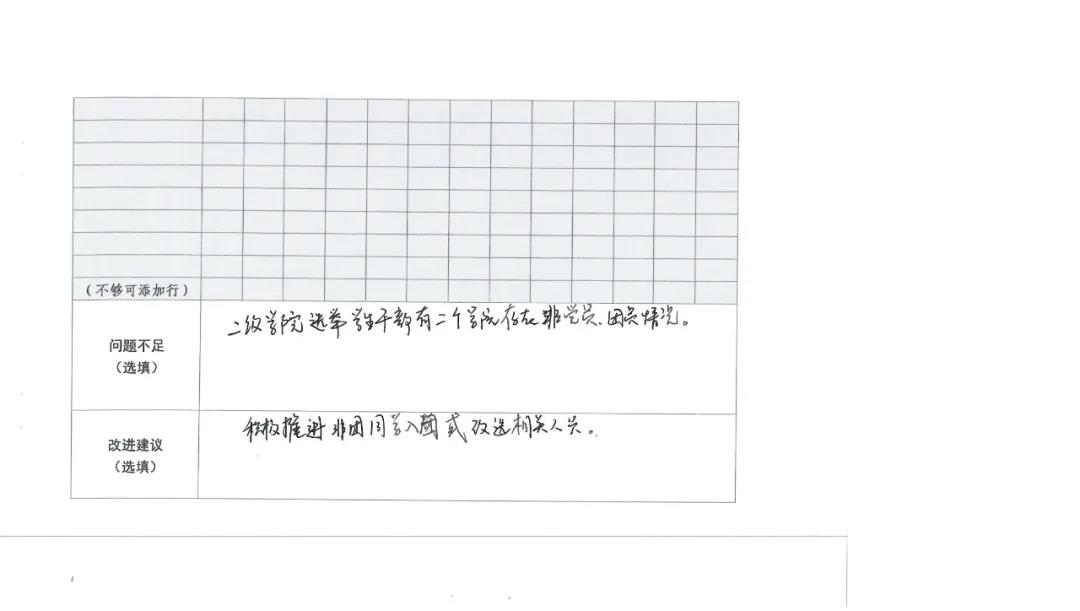 （不够可添加行）
二级学院选举学生干部有二个学院存在非党员、团员情况。
问题不足
（选填）
积极推进非团同学入团或改选相关人员。
改进建议
（选填）